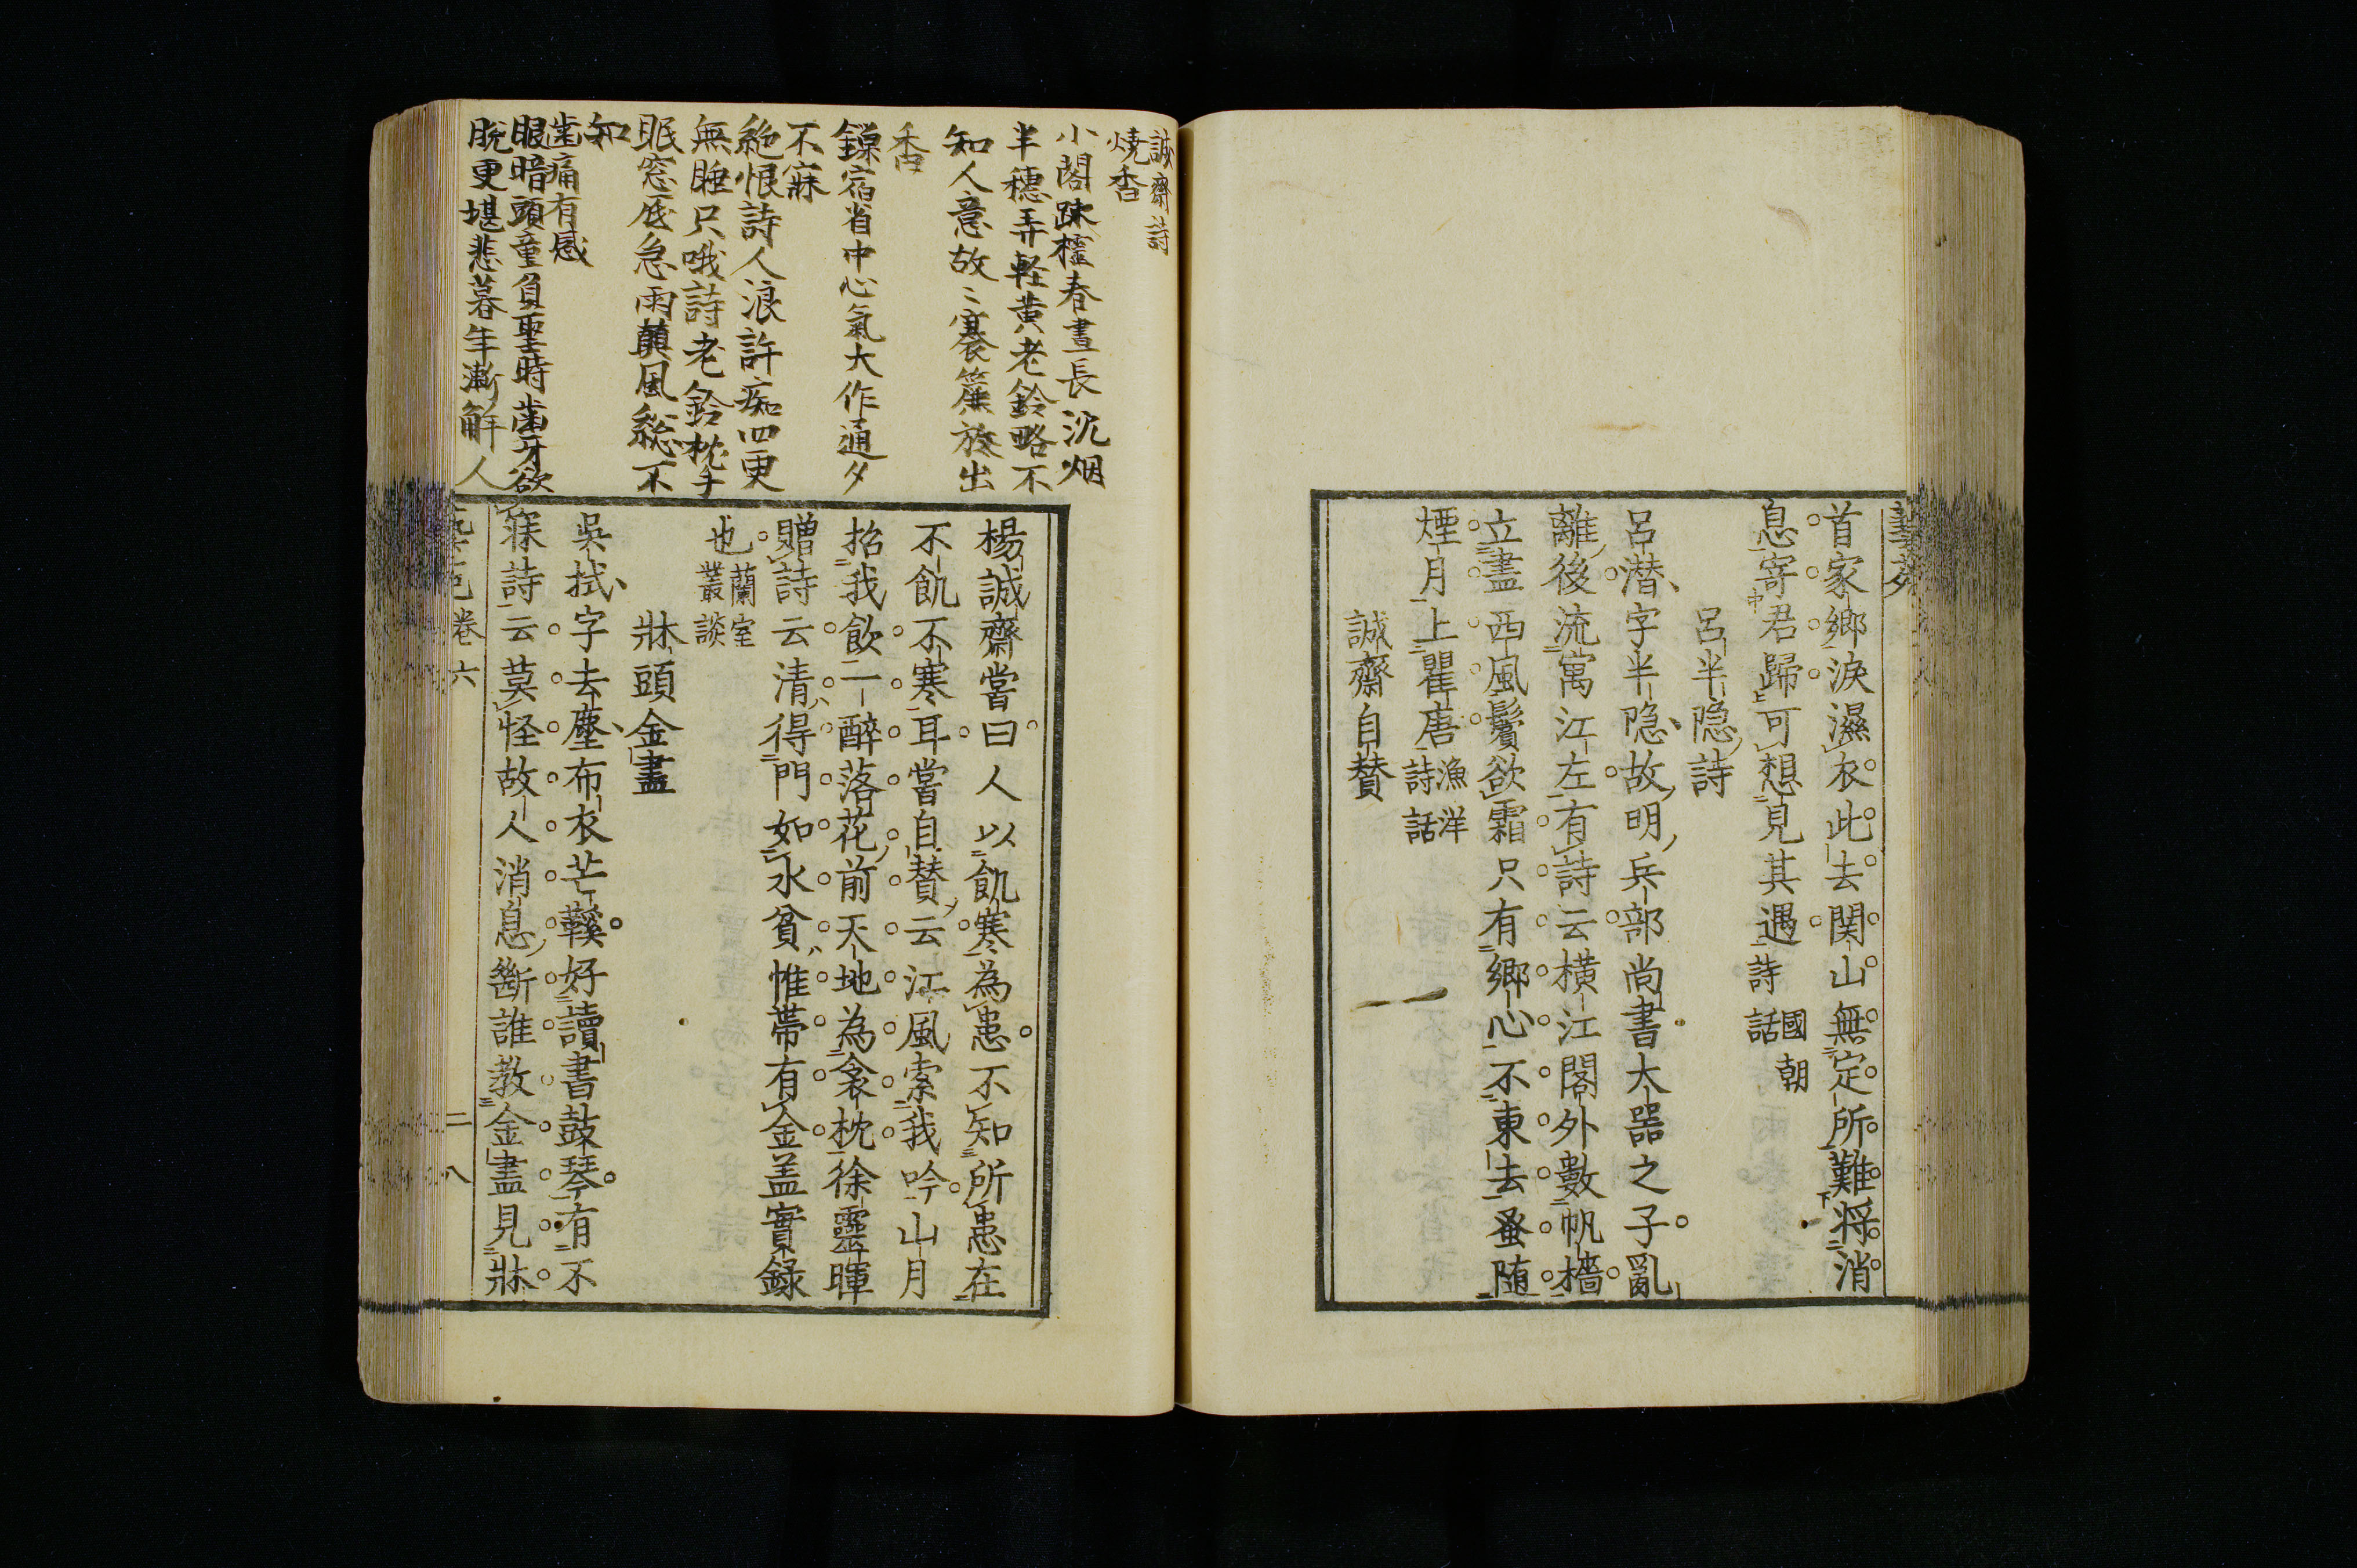 首家鄉淚濕衣此去関山無定所難将消
息寄君歸可想見其遇詩國朝詩話
呂半隐詩
呂潜字半隐故明兵部尚書大器之子亂
離後流寓江左有詩云横江閣外數帆檣
立盡西風鬢欲霜只有鄉心不東去蚤随
煙月上瞿唐漁洋詩話
誠齋自賛
誠齋詩
燒香
小閣踈櫺春晝長沉烟
半穗弄軽黄老鈴略不
知人意故〻褰簾放出
香
鏁宿省中心氣大作通夕
不寐
絶恨詩人浪許痴四更
無睡只哦詩老鈴枕手
眠窓底急雨顛風総不
知
歯痛有感
眼暗頭童負聖時歯牙欲
脫更堪悲暮年漸觧人
楊誠齋嘗曰人以飢寒為患不知所患在
不飢不寒耳嘗自賛云江風索我吟山月
招我飲一醉落花前天地為衾枕徐靈暉
贈詩云清得門如水貧惟帶有金盖實録
也蘭室叢談
牀頭金盡
吳拭字去塵布衣芒鞵好讀書鼓琴有不
寐詩云莫怪故人消息斷誰教金盡見牀
卷六
二八